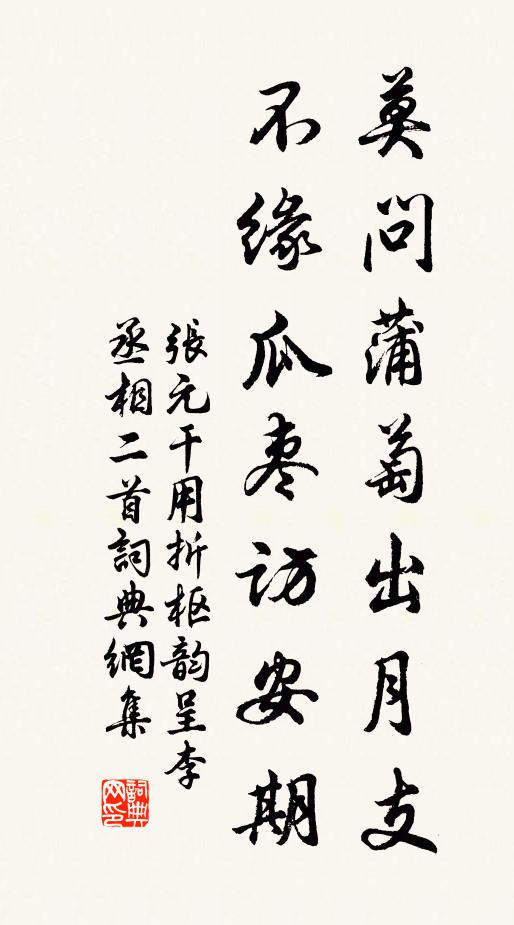 莫問蒲萄出月支
不緣瓜枣訪安期
張元干用折枢韵呈李
丞相二首詞典網集
詞典
网印